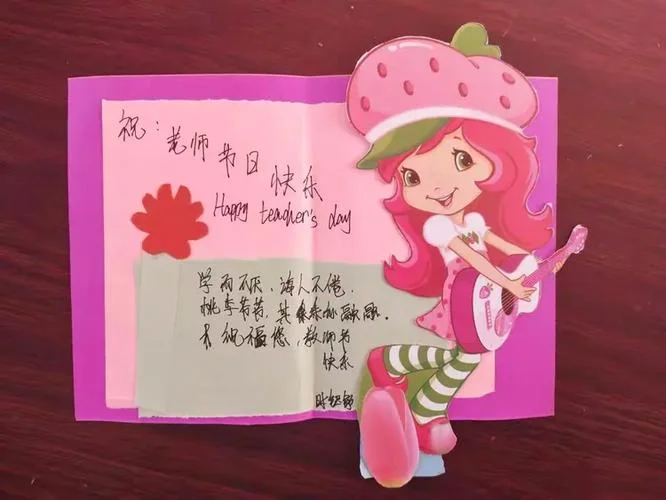 祝：老师节日快乐
Happy teacher's day
学而不厌，诲人不倦．
桃李芬芳，其乐融融．
祝福您，教师节
快乐